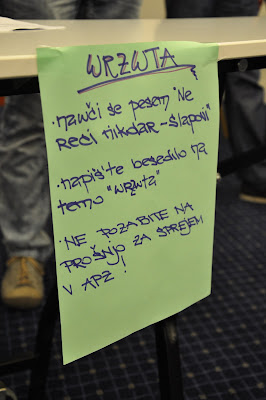 WRZWTA
· nawči se pesem "Ne
reci nikdar - šlaponi"
· napiš'te besedilo na
temo "wrzwta"
· NE POZABITE NA
PROŠNJO ZA SPREJEM
V APZ!